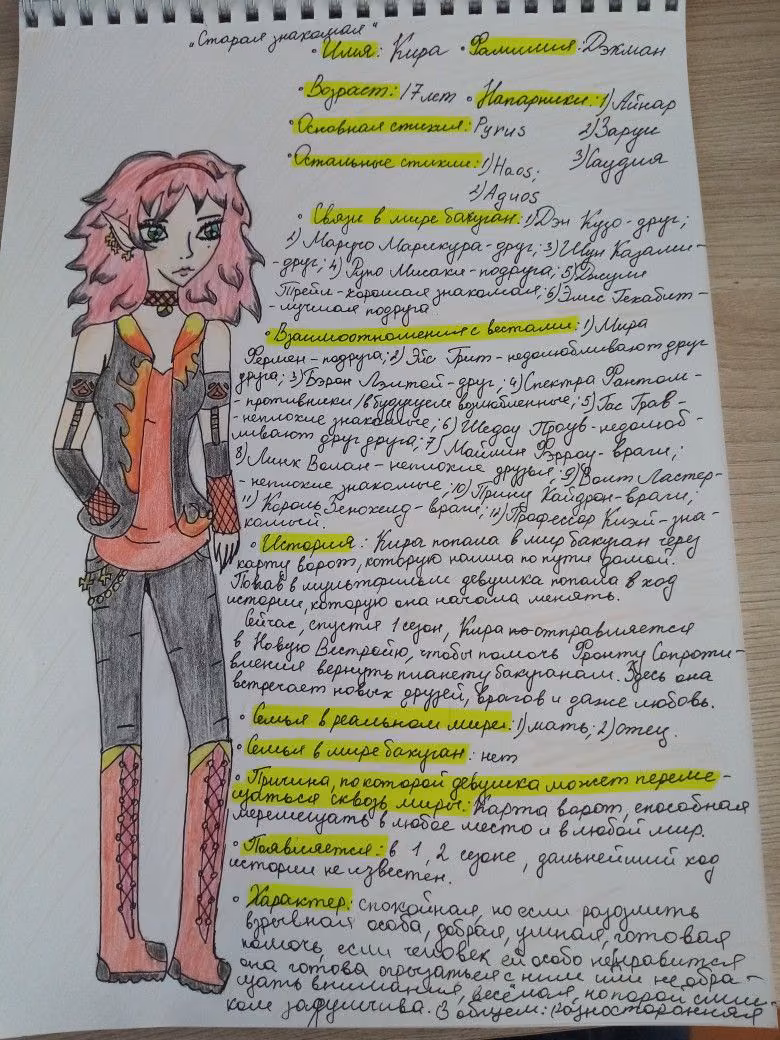 "Старая знакомая"
• Имя: Кира • Фамилия: Дэкман
• Возраст: 17 лет • Напарники: 1) Айнар
• Основная стихия: Pyrus 2) Заруи
• Остальные стихии: 1) Haos; 3) Гаудия
2) Aguos
• Связи в мире бакуган: 1) Дэн Кузо - друг;
2) Маручо Марикура - друг; 3) Шун Казами-
- друг; 4) Руно Мисаки - подруга; 5) Джули
Трейл - хорошая знакомая; 6) Элис Гехабит -
- лучшая подруга.
• Взаимоотношения с вестами: 1) Мира
Фермен - подруга; 2) Эйс Грит - недолюбливают друг
друга; 3) Бэрон Лэлтой - друг; 4) Спектра Фантом -
- противники / в будущем возлюбленные; 5) Гас Грав -
- неплохие знакомые; 6) Шедоу Проув - недолюб-
ливают друг друга; 7) Маймин Фэрроу - враги;
8) Линк Волан - неплохие друзья; 9) Волт Ластер-
- неплохие знакомые; 10) Принц Хайдрон - враги;
11) Король Зенохелд - враги; 12) Профессор Клэй - зна-
комый.
• История: Кира попала в мир бакуган через
карту ворот, которую нашла по пути домой.
Попав в мультфильм девушка попала в ход
истории, которую она начала менять.
Сейчас, спустя 1 сезон, Кира отправляется
в Новую Вестройю, чтобы помочь Фронту Сопроти-
вления вернуть планету бакуганам. Здесь она
встречает новых друзей, врагов и даже любовь.
• Семья в реальном мире: 1) мать; 2) отец.
• Семья в мире бакуган: нет
• Причина, по которой девушка может переме-
щаться сквозь миры: Карта ворот, способная
перемещать в любое место и в любой мир.
• Появляется: в 1, 2 сезоне, дальнейший ход
истории не известен.
• Характер: спокойная, но если разозлить
взрывная особа, добрая, умная, готовая
помочь, если человек ей особо не нравится
она готова огрызаться с ним или не обра-
щать внимания, весёлая, но порой слиш-
ком задумчива. В общем: разносторонняя